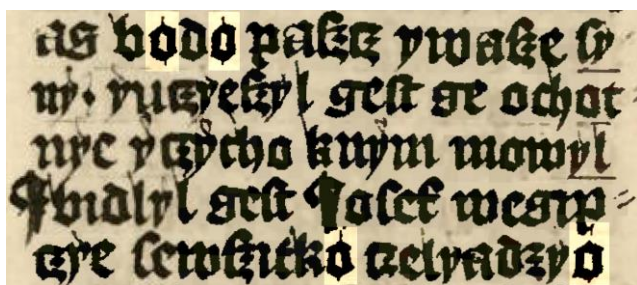 as bødø paſzcz ywaſze ſy
ny· yuczyeſzyl geſt ge ochot=
nye yczycho knym mowyl
¶Bidlyl geſt Joſef wegip=
czye ſewſzitkø czelyadzyø